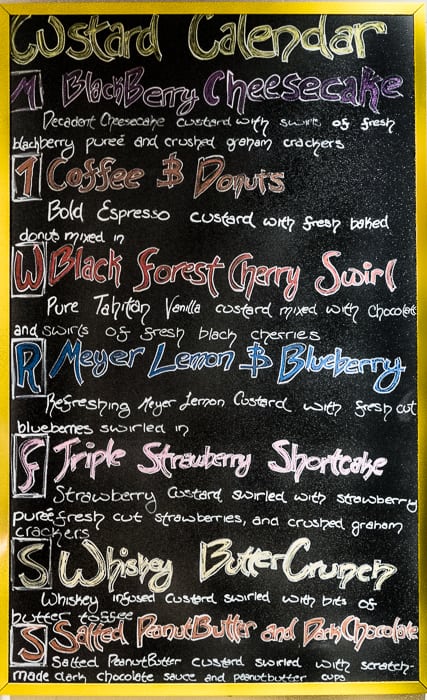 Custard Calendar
M BlackBerry Cheesecake
Decadent Cheesecake custard with swirls of fresh
blackberry pureé and crushed graham crackers
T Coffee & Donuts
Bold Espresso custard with fresh baked
donuts mixed in
W Black Forest Cherry Swirl
Pure Tahitian Vanilla custard mixed with chocolate
and swirls of fresh black cherries
R Meyer Lemon & Blueberry
Refreshing Meyer Lemon Custard with fresh cut
blueberries swirled in
F Triple Strawberry Shortcake
Strawberry Custard swirled with strawberry
pureé, fresh cut strawberries, and crushed graham
crackers
S Whiskey ButterCrunch
Whiskey infused custard swirled with bits of
butter toffee
S Salted PeanutButter and DarkChocolate
Salted PeanutButter custard swirled with scratch-
made dark chocolate sauce and peanutbutter cups